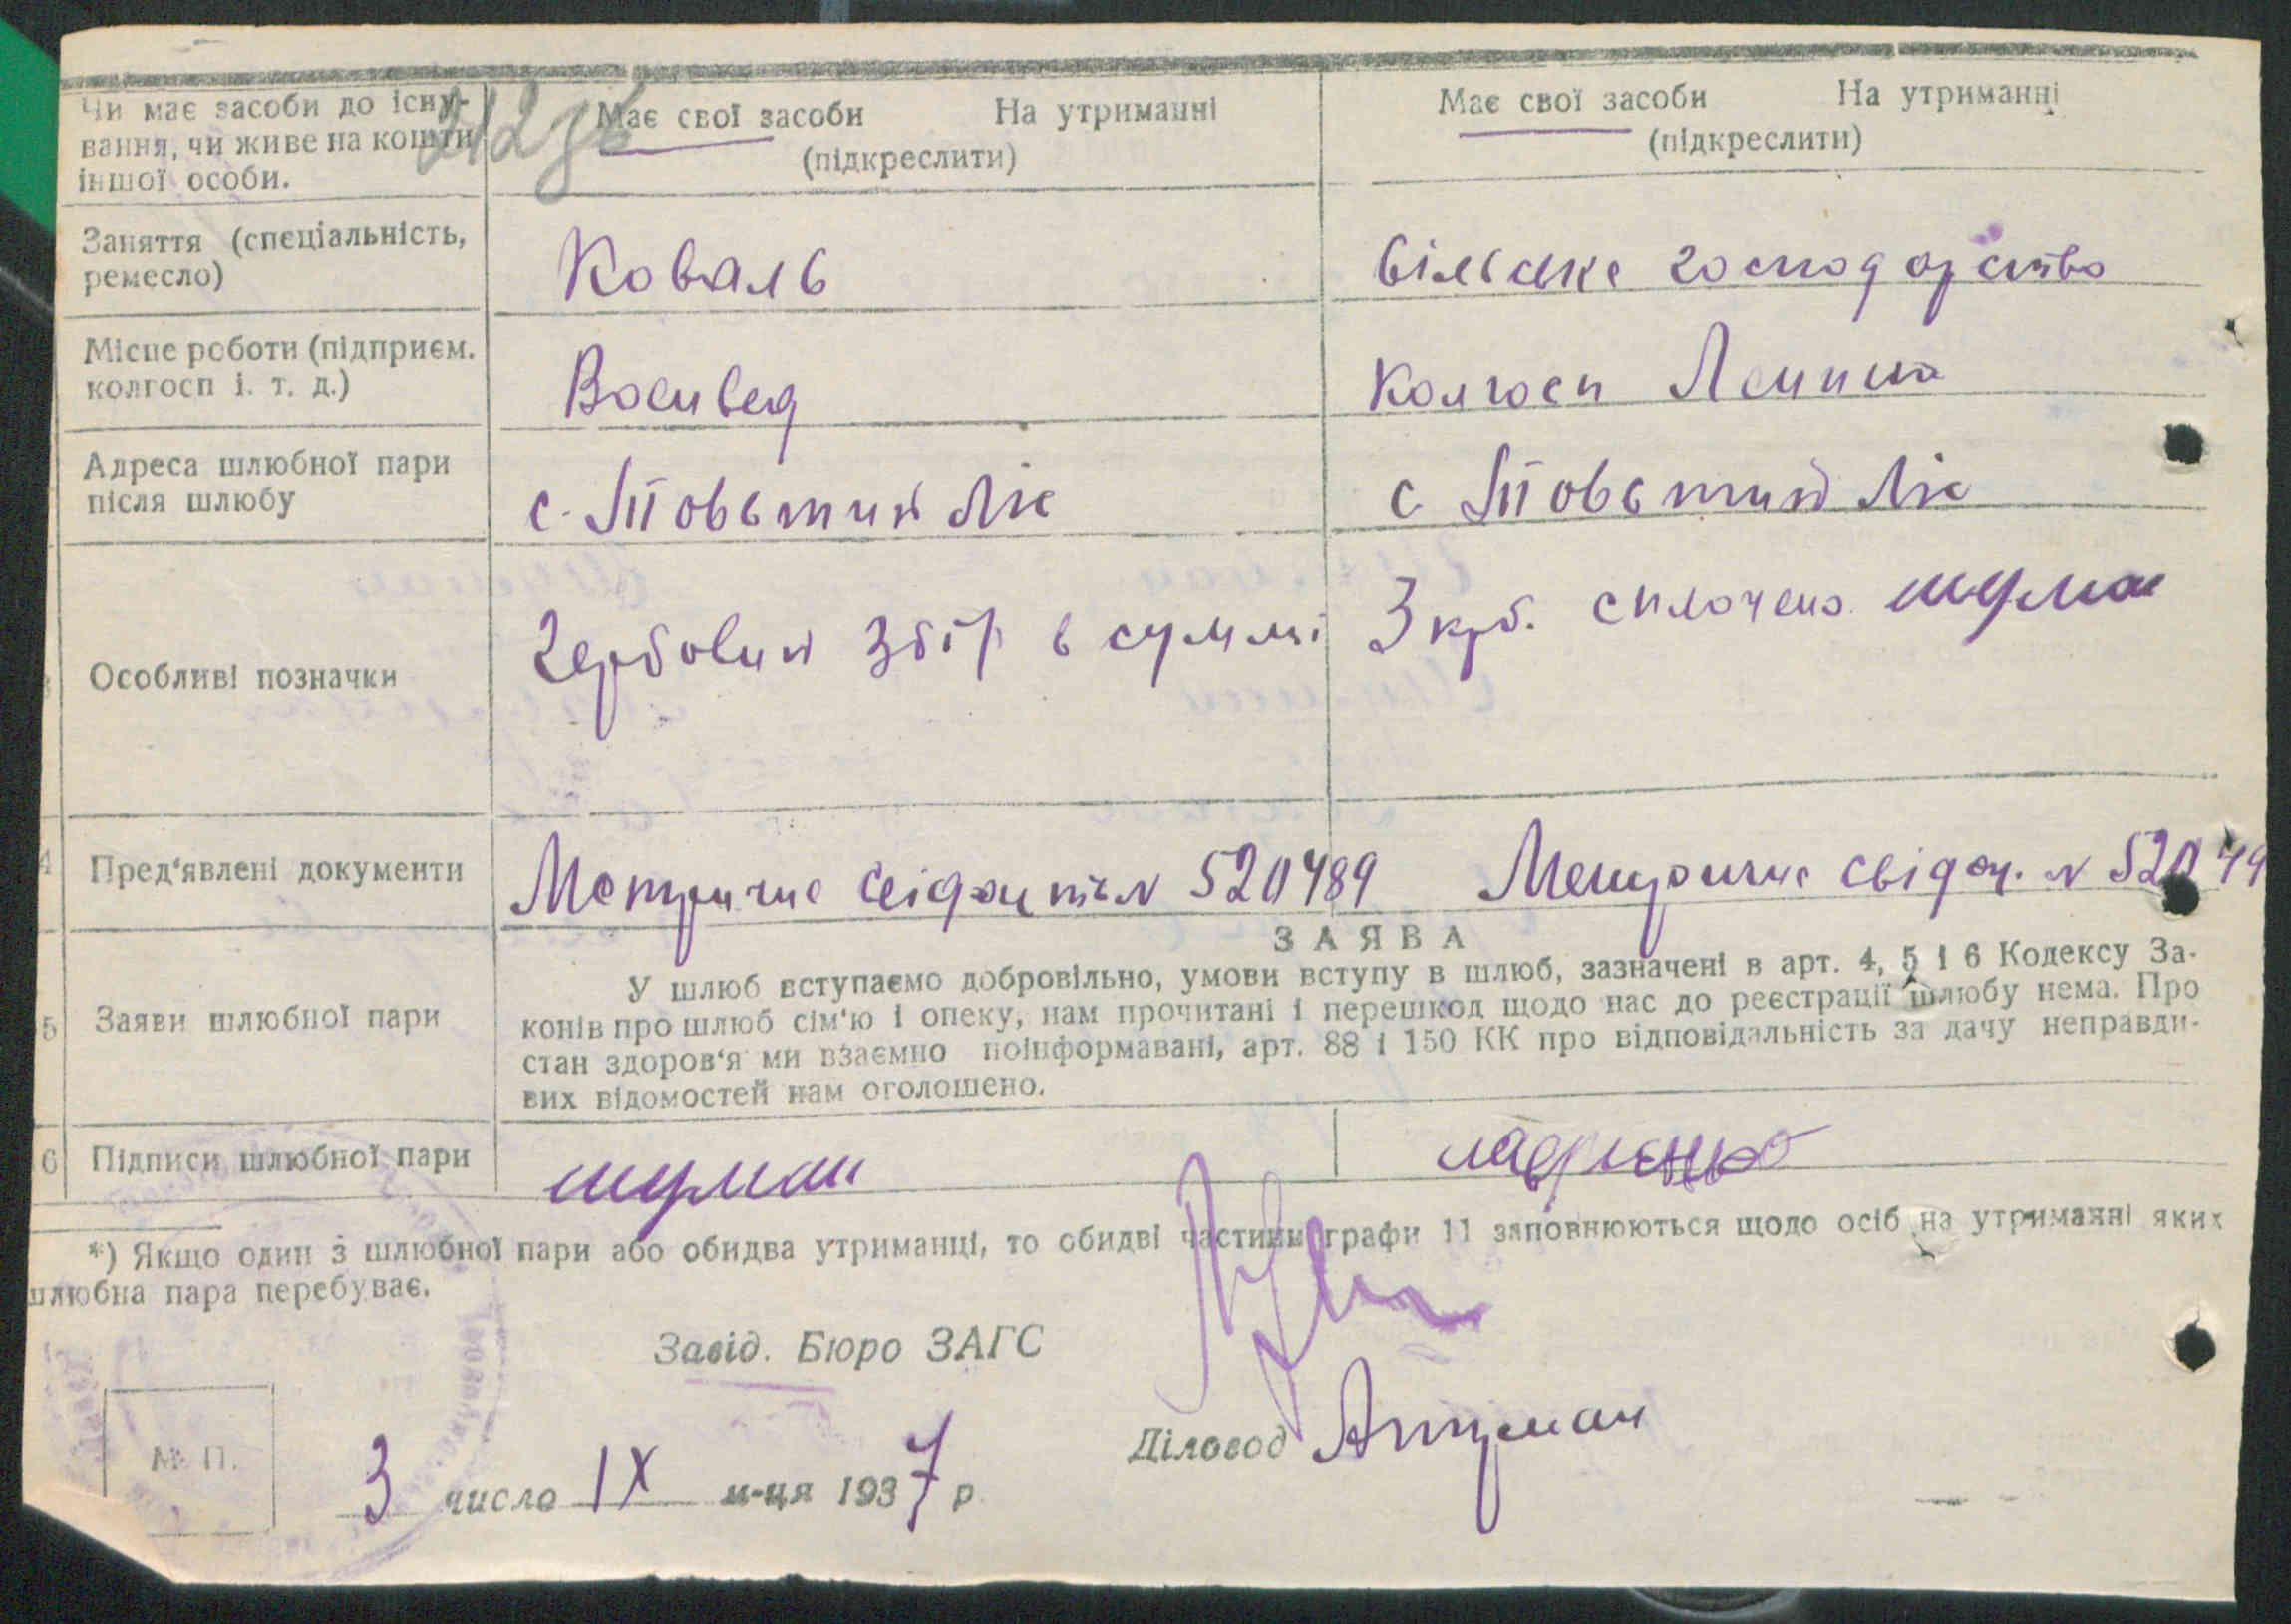 Чи має засоби до існу-
вання, чи живе на кошти
іншої особи.
Має свої засоби На утриманні
(підкреслити)
Має свої засоби На утриманні
(підкреслити)
Заняття (спеціальність,
ремесло)
Коваль
сільське господарство
Місце роботи (підприєм.
колгосп і. т. д.)
Военвед
Колгосп Ленина
Адреса шлюбної пари
після шлюбу
с. Товстий Ліс
с Товстий Ліс
Особливі позначки
Гербовий збір в суммі 3 крб. сплочено шуман
4 Пред'явлені документи
Метричне свідоцтв N 520489
Метричне свідоц. N 52049
ЗАЯВА
5 Заяви шлюбної пари
У шлюб вступаємо добровільно, умови вступу в шлюб, зазначені в арт. 4, 5 і 6 Кодексу За-
конів про шлюб сім'ю і опеку, нам прочитані і перешкод щодо нас до реєстрації шлюбу нема. Про
стан здоров'я ми взаємно поінформавані, арт. 88 і 150 КК про відповідальність за дачу неправди-
вих відомостей нам оголошено.
6 Підписи шлюбної пари
шуман
*) Якщо один з шлюбної пари або обидва утриманці, то обидві частини графи 11 заповнюються щодо осіб на утриманні яких
шлюбна пара перебуває.
Завід. Бюро ЗАГС
Діловод
М. П.
3 число IX м-ця 1937 р.